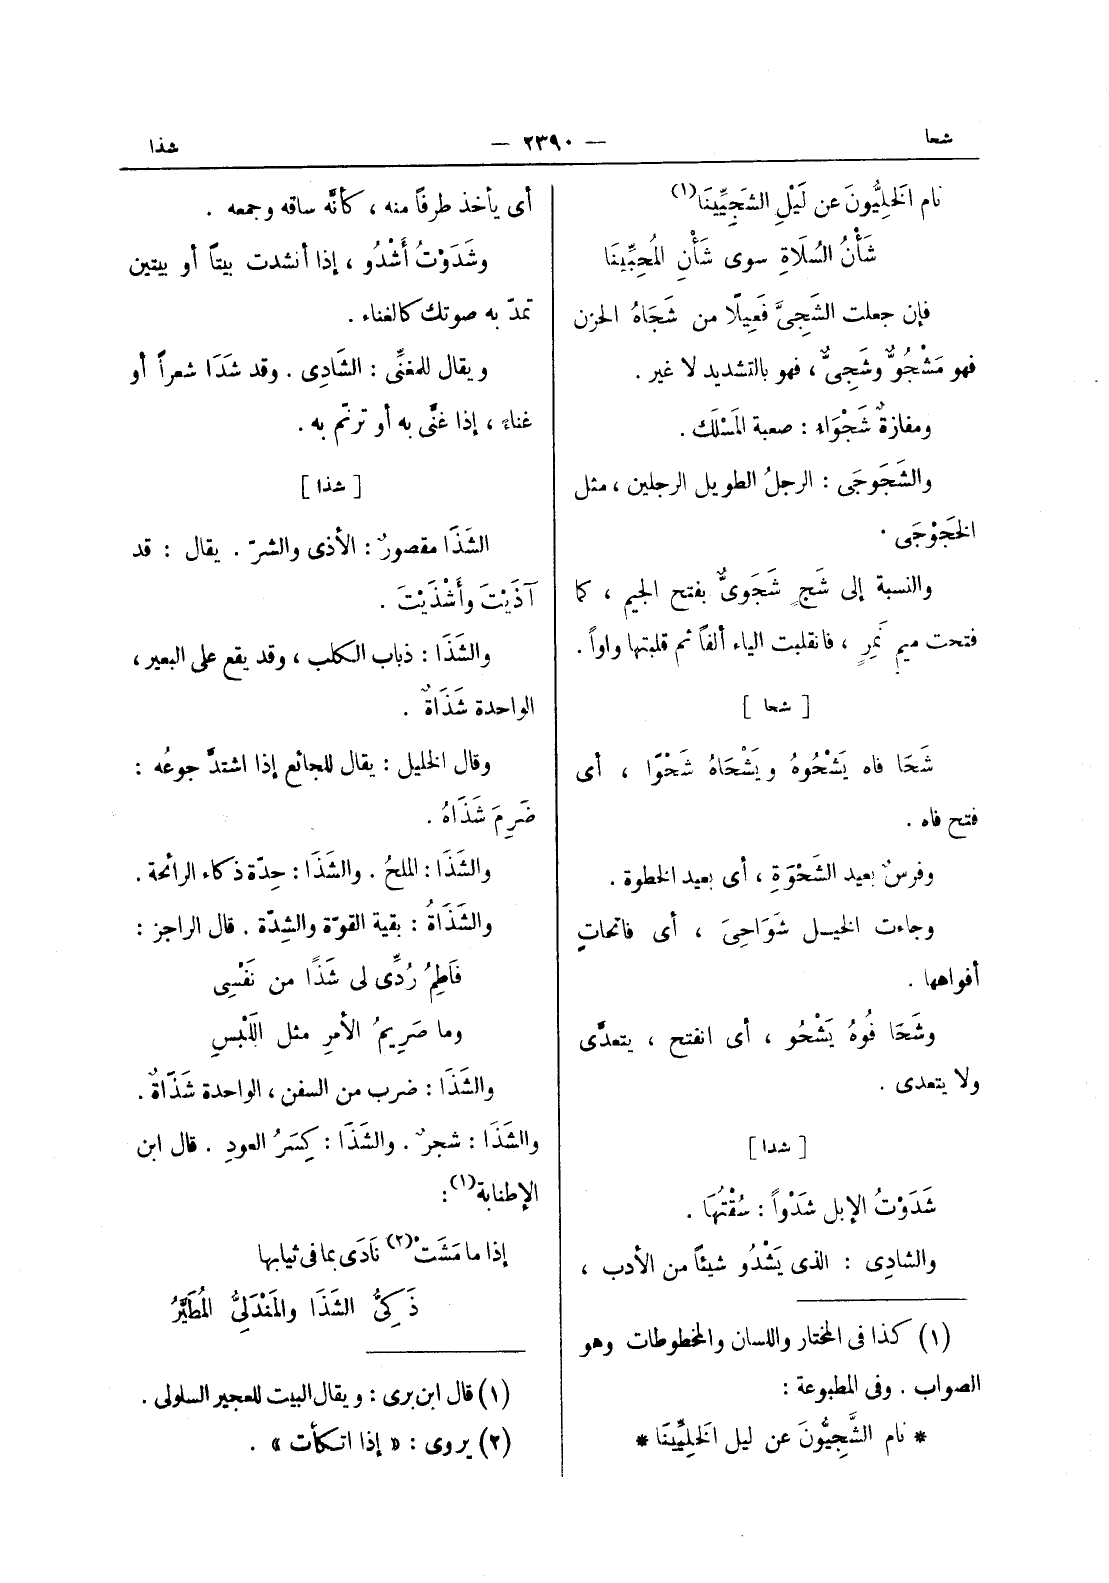 شحا
— ٢٣٩٠ —
شذا
نام الخَلِيُّونَ عن لَيْلِ الشَجِيِّينَا(١)
شَأْنُ السُلَاةِ سوى شَأْنِ المُحِبِّينَا
فإن جعلت الشَجِىَّ فَعِيلًا من شَجَاهُ الحزن
فهو مَشْجُوٌّ وشَجِىٌّ ، فهو بالتشديد لا غير .
ومفازةٌ شَجْوَاء : صعبة المَسْلَك .
والشَجَوجَى : الرجلُ الطويل الرجلين ، مثل
الخَجَوْجَى .
والنسبة إلى شَجٍ شَجَوىٌّ بفتح الجيم ، كما
فتحت ميم نَمِرٍ ، فانقلبت الياء ألفاً ثم قلبتها واواً .
[ شحا ]
شَحَا فاه يَشْحُوهُ ويَشْحَاهُ شَحْوًا ، أى
فتح فاه .
وفرسٌ بعيد الشَحْوَةِ ، أى بعيد الخطوة .
وجاءت الخيل شَوَاحِىَ ، أى فاتحاتٍ
أفواهها .
وشَحَا فُوهُ يَشْحُو ، أى انفتح ، يتعدَّى
ولا يتعدى .
[ شدا ]
شَدَوْتُ الإبل شَدْواً : سُقْتُهَا .
والشادِى : الذى يَشْدُو شيئاً من الأدب ،
(١) كذا فى المختار واللسان والمخطوطات وهو
الصواب . وفى المطبوعة :
* نام الشَّجِيُّونَ عن ليل الخَلِيِّينَا *
أى يأخذ طرفاً منه ، كأنَّه ساقه وجمعه .
وشَدَوْتُ أَشْدُو ، إذا أنشدت بيتاً أو بيتين
تمدّ به صوتك كالغناء .
ويقال للمغنِّى : الشَادِى . وقد شَدَا شعراً أو
غناءً ، إذا غنَّى به أو ترنّم به .
[ شذا ]
الشَذَا مقصورٌ : الأذى والشرّ . يقال : قد
آذَيْتَ وأَشْذَيْتَ .
والشَذَا : ذباب الكلب ، وقد يقع على البعير ،
الواحدة شَذَاةٌ .
وقال الخليل : يقال للجائع إذا اشتدَّ جوعُه :
ضَرِمَ شَذَاهُ .
والشَذَا : الملحُ . والشَذَا : حِدّة ذكاء الرائحة .
والشَذَاةُ : بقية القوّة والشِدّة . قال الراجز :
فَاطِمُ رُدِّى لى شَذًا من نَفْسِى
وما صَرِيمُ الأمرِ مثل اللَبْسِ
والشَذَا : ضرب من السفن ، الواحدة شَذَاةٌ .
والشَذَا : شجرٌ . والشَذَا : كِسَرُ العودِ . قال ابن
الإطنابة(١) :
إذا ما مَشَتْ(٢) نَادَى بما فى ثيابها
ذَكِىُّ الشَذَا والمَنْدَلِىُّ المُطَيَّرُ
(١) قال ابن برى : ويقال البيت للعجير السلولى .
(٢) يروى : « إذا اتكأت » .